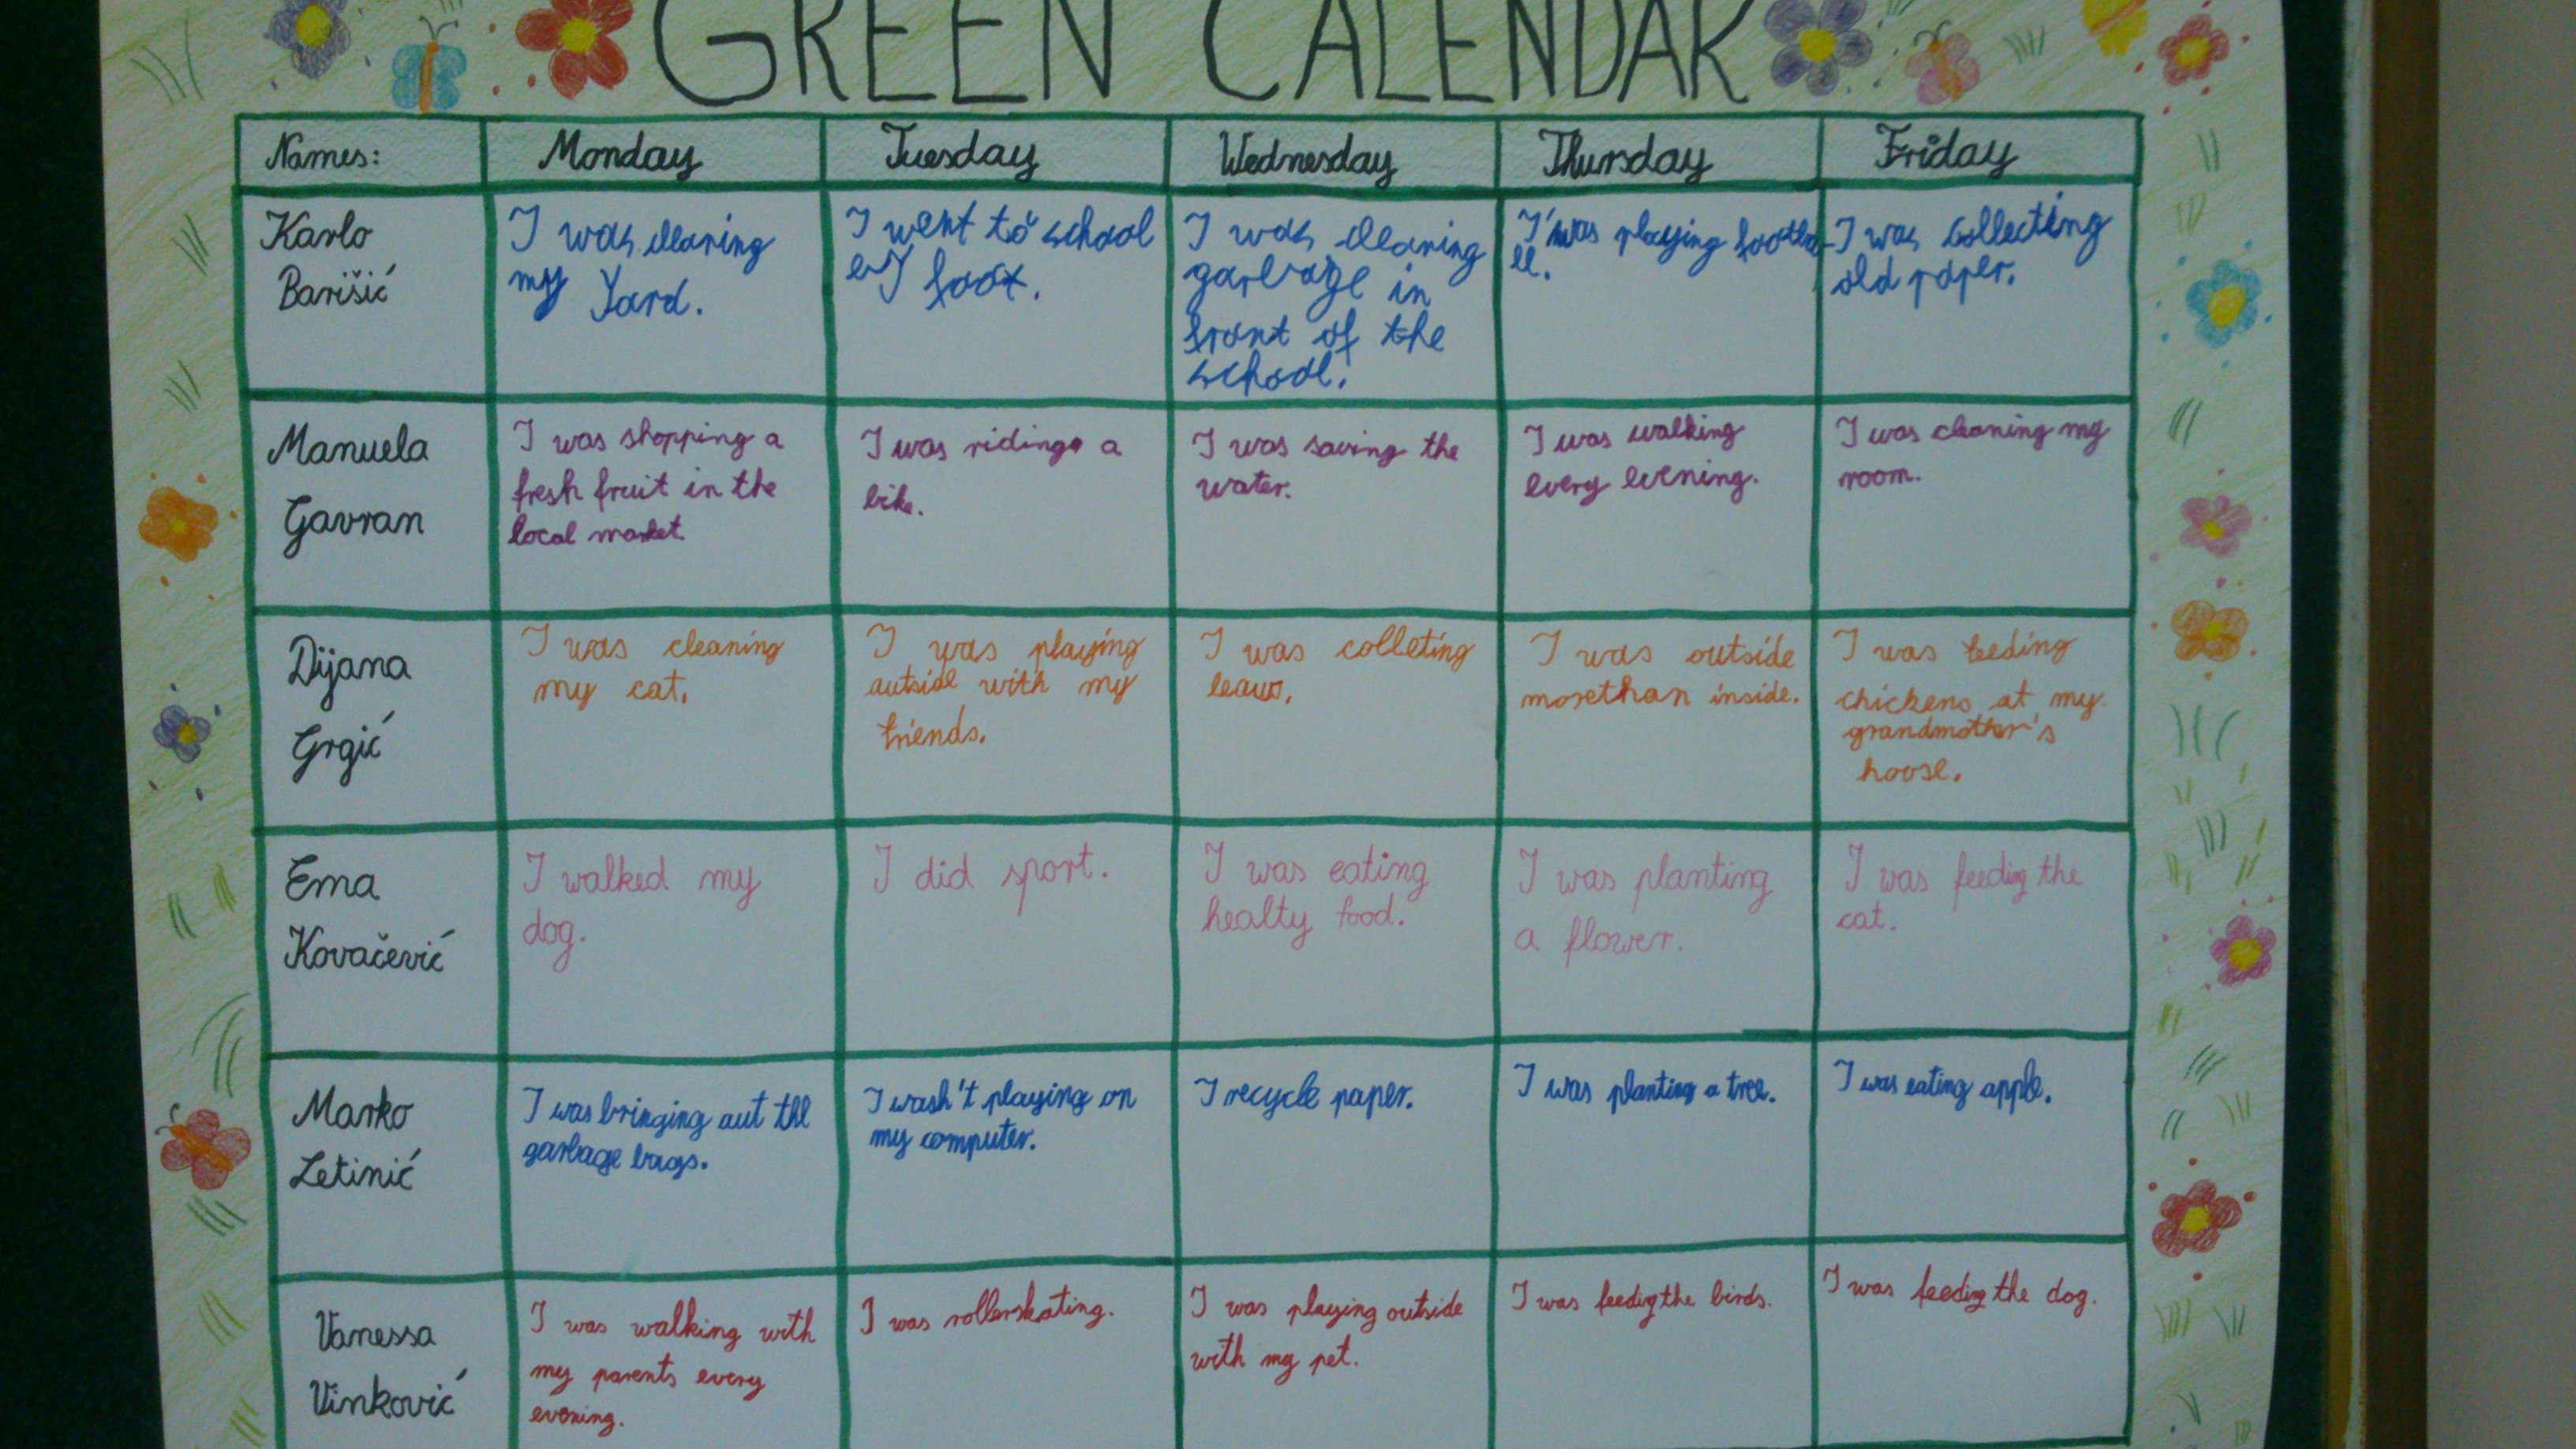 GREEN CALENDAR
Names: Monday Tuesday Wednesday Thursday Friday
Karlo
Barišić
I was cleaning
my Yard.
I went to school
by foot.
I was cleaning
garbage in
front of the
school.
I was playing footba-
ll.
I was collecting
old paper.
Manuela
Gavran
I was shopping a
fresh fruit in the
local market.
I was riding a
bike.
I was saving the
water.
I was walking
every evening.
I was cleaning my
room.
Dijana
Grgić
I was cleaning
my cat.
I was playing
outside with my
friends.
I was colleting
leaws.
I was outside
morethan inside.
I was feeding
chickens at my
grandmother's
hoose.
Ema
Kovačević
I walked my
dog.
I did sport.
I was eating
healty food.
I was planting
a flower.
I was feeding the
cat.
Marko
Letinić
I was bringing aut the
garbage bags.
I wash't playing on
my computer.
I recycle paper.
I was planting a tree.
I was eating apple.
Vanessa
Vinković
I was walking with
my parents every
evening.
I was rollerskating.
I was playing outside
with my pet.
I was feedig the birds.
I was feedig the dog.